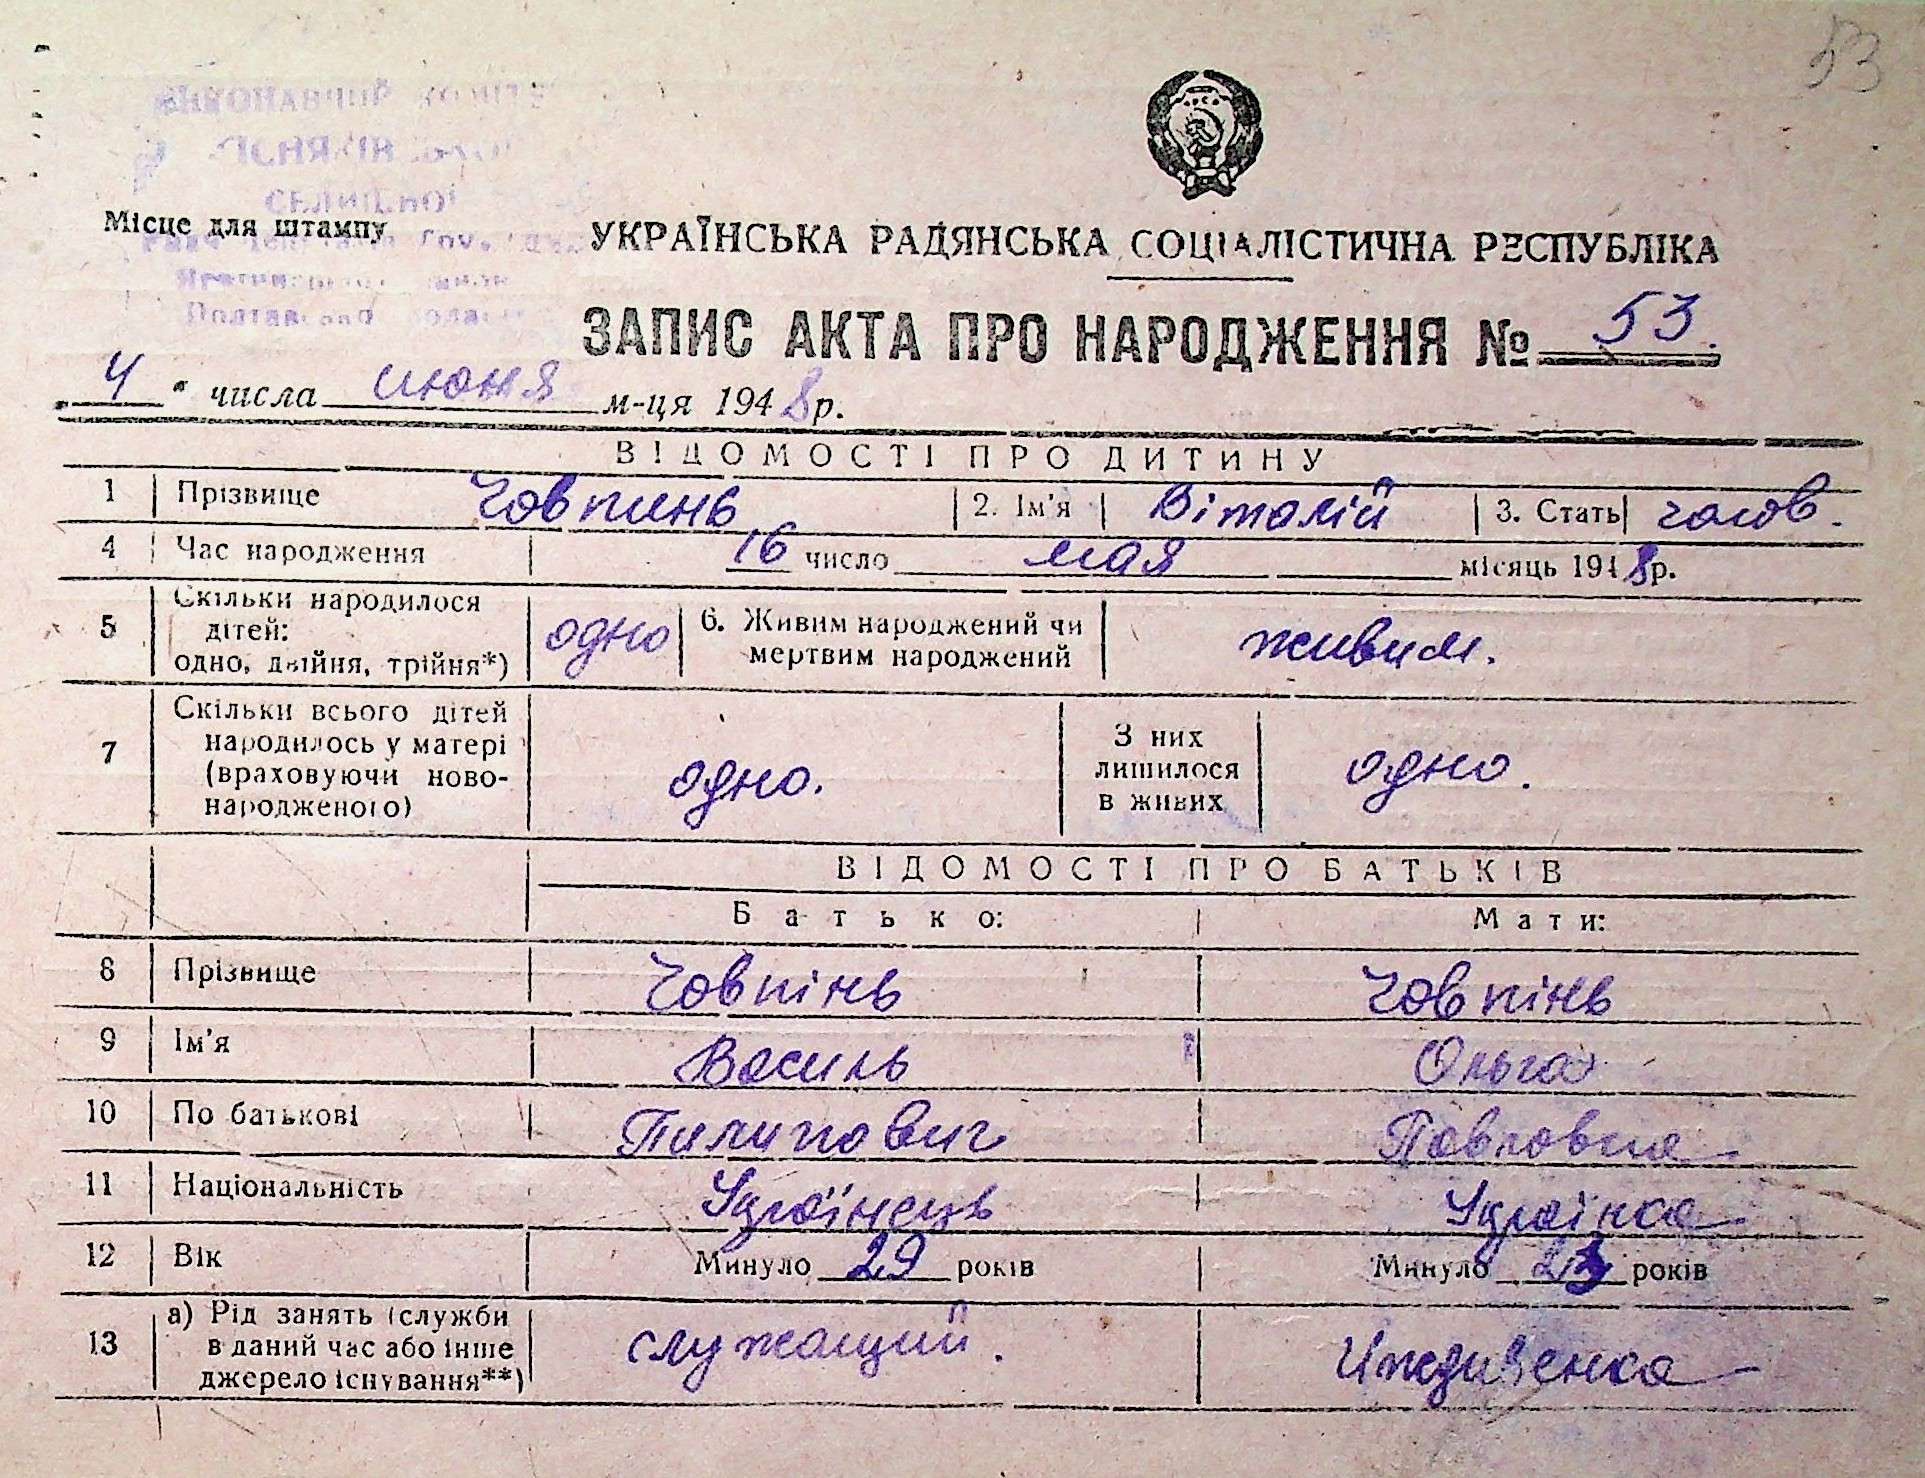 53
СЕЛИЩНОЇ
Місце для штампу
УКРАЇНСЬКА РАДЯНСЬКА СОЦІАЛІСТИЧНА РЕСПУБЛІКА
ЗАПИС АКТА ПРО НАРОДЖЕННЯ № 53.
4 " числа июня м-ця 1948 р.
ВІДОМОСТІ ПРО ДИТИНУ
1 Прізвище Човпинь 2. Ім'я Віталій 3. Стать чолов.
4 Час народження 16 число мая місяць 1948 р.
5 Скільки народилося дітей: одно, двійня, трійня*) одно 6. Живим народжений чи мертвим народжений живим.
7 Скільки всього дітей народилось у матері (враховуючи ново-народженого) одно. З них лишилося в живих одно.
ВІДОМОСТІ ПРО БАТЬКІВ
Батько: Мати:
8 Прізвище Човпінь Човпінь
9 Ім'я Василь Ольга
10 По батькові Пилипович Павловна
11 Національність Українець Українка
12 Вік Минуло 29 років Минуло 23 років
13 а) Рід занять (служби в даний час або інше джерело існування**) служащий. Иждивенка